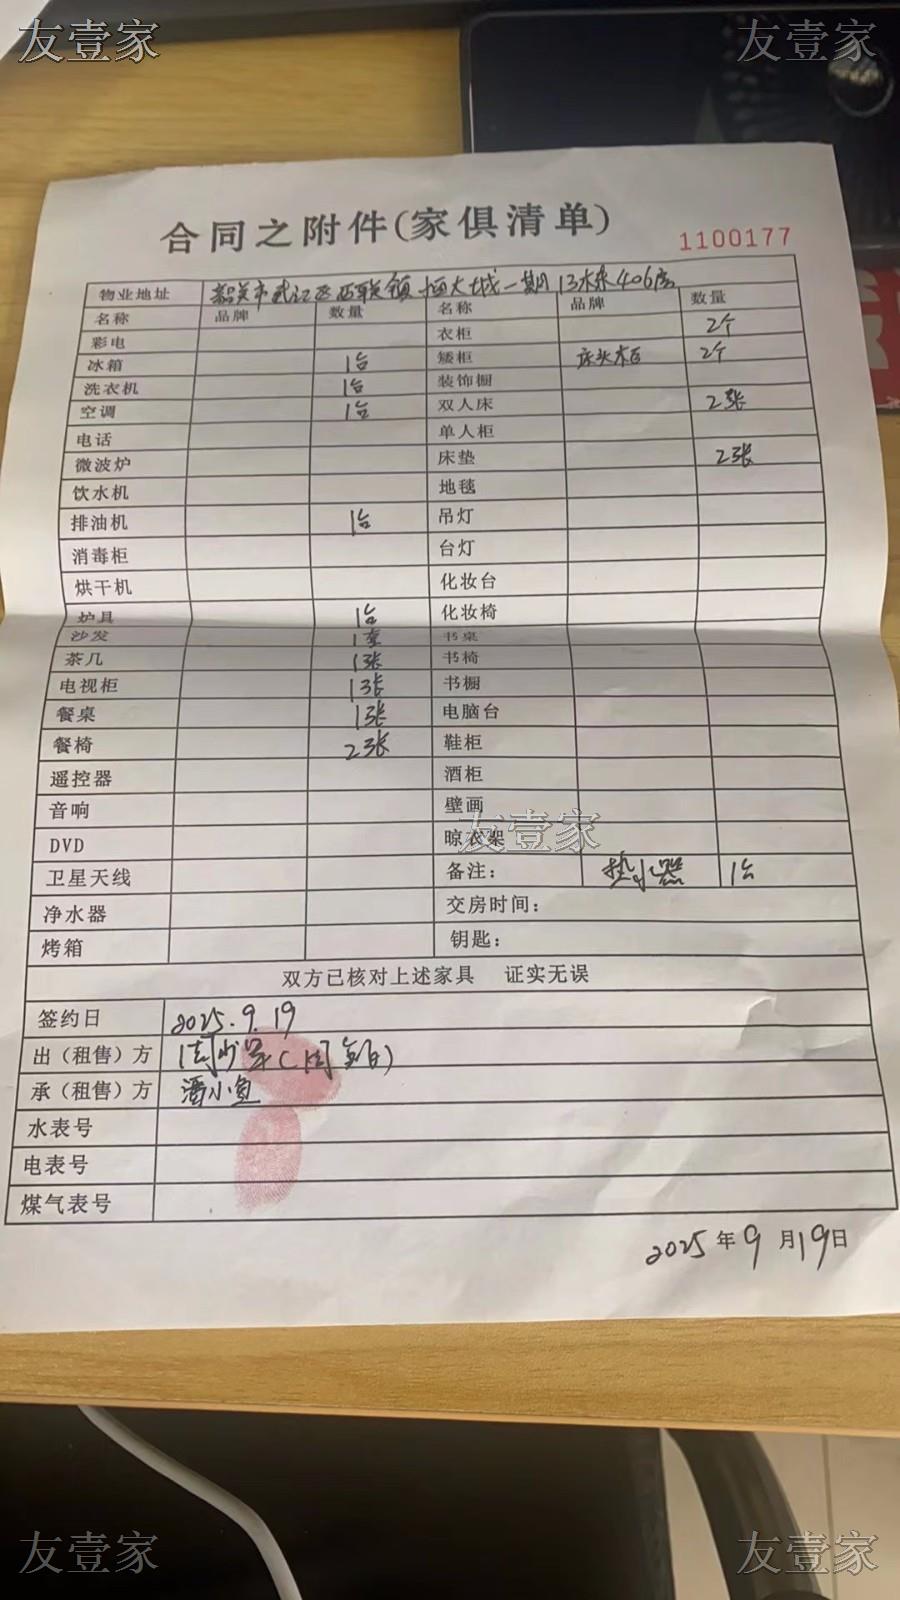 友壹家 友壹家
合同之附件(家俱清单)
1100177
物业地址 韶关市武江区西联镇恒大城一期13栋406房
名称 品牌 数量 名称 品牌 数量
彩电 衣柜 2个
冰箱 1台 矮柜 床头柜 2个
洗衣机 1台 装饰橱
空调 1台 双人床 2张
电话 单人柜
微波炉 床垫 2张
饮水机 地毯
排油机 1台 吊灯
消毒柜 台灯
烘干机 化妆台
炉具 1台 化妆椅
沙发 1套 书桌
茶几 1张 书椅
电视柜 1张 书橱
餐桌 1张 电脑台
餐椅 2张 鞋柜
遥控器 酒柜
音响 壁画
友壹家
DVD 晾衣架
卫星天线 备注: 热水器 1台
净水器 交房时间:
烤箱 钥匙:
双方已核对上述家具 证实无误
签约日 2025.9.19
出(租售)方
承(租售)方 潘小鱼
水表号
电表号
煤气表号
2025年9月19日
友壹家 友壹家